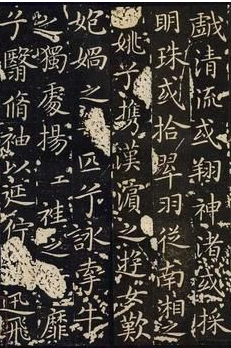 戲清流或翔神渚或採
明珠或拾翠羽從南湘之
姚兮攜漢濱之遊女歎
媧之匹兮詠牽牛
之獨處揚袿之靡
兮翳脩袖以延佇迅飛